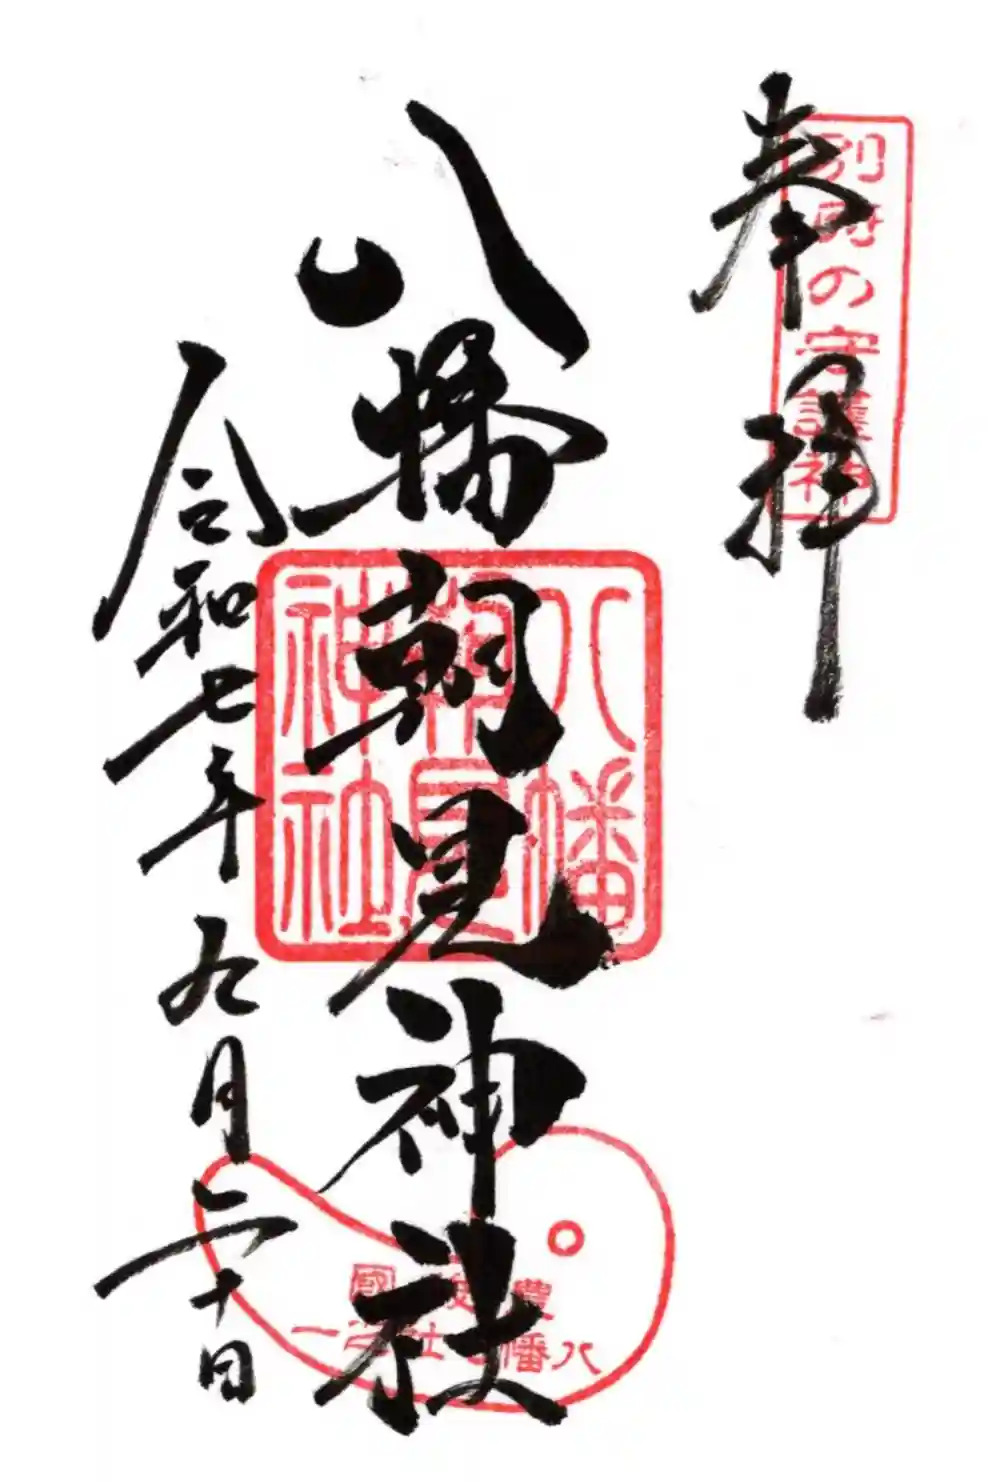 別府の守護神
奉拝
八幡朝見神社
八幡
朝見
神社
豊後國
八幡七社之一
令和七年九月二十日